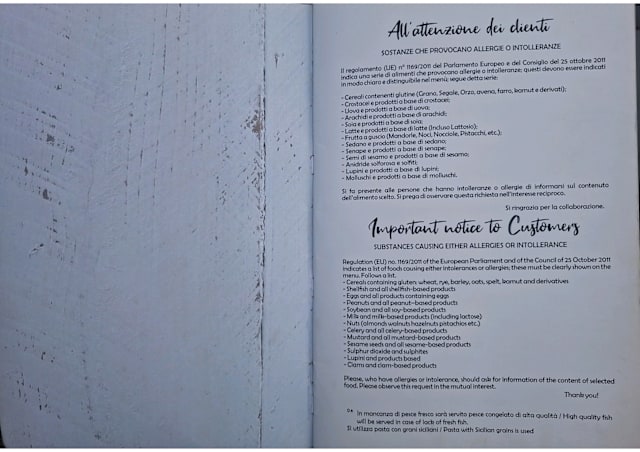 All'attenzione dei clienti
SOSTANZE CHE PROVOCANO ALLERGIE O INTOLLERANZE
Il regolamento (UE) n° 1169/2011 del Parlamento Europeo e del Consiglio del 25 ottobre 2011
indica una serie di alimenti che provocano allergie o intolleranze; questi devono essere indicati
in modo chiaro e distinguibile nel menù; segue detta serie:
- Cereali contenenti glutine (Grano, Segale, Orzo, avena, farro, kamut e derivati);
- Crostacei e prodotti a base di crostacei;
- Uova e prodotti a base di uova;
- Arachidi e prodotti a base di arachidi;
- Soia e prodotti a base di soia;
- Latte e prodotti a base di latte (Incluso Lattosio);
- Frutta a guscio (Mandorle, Noci, Nocciole, Pistacchi, etc.);
- Sedano e prodotti a base di sedano;
- Senape e prodotti a base di senape;
- Semi di sesamo e prodotti a base di sesamo;
- Anidride solforosa e solfiti;
- Lupini e prodotti a base di lupini;
- Molluschi e prodotti a base di molluschi.
Si fa presente alle persone che hanno intolleranze o allergie di informarsi sul contenuto
dell'alimento scelto. Si prega di osservare questa richiesta nell'interesse reciproco.
Si ringrazia per la collaborazione.
Important notice to Customers
SUBSTANCES CAUSING EITHER ALLERGIES OR INTOLLERANCE
Regulation (EU) no. 1169/2011 of the European Parliament and of the Council of 25 October 2011
indicates a list of foods causing either intolerances or allergies; these must be clearly shown on the
menu. Follows a list.
- Cereals containing gluten: wheat, rye, barley, oats, spelt, kamut and derivatives
- Shellfish and all shellfish-based products
- Eggs and all products containing eggs
- Peanuts and all peanut-based products
- Soybean and all soy-based products
- Milk and milk-based products (including lactose)
- Nuts (almonds walnuts hazelnuts pistachios etc.)
- Celery and all celery-based products
- Mustard and all mustard-based products
- Sesame seeds and all sesame-based products
- Sulphur dioxide and sulphites
- Lupini and products based
- Clams and clam-based products
Please, who have allergies or intolerance, should ask for information of the content of selected
food. Please observe this request in the mutual interest.
Thank you!
In mancanza di pesce fresco sarà servito pesce congelato di alta qualità / High quality fish
will be served in case of lack of fresh fish.
Si utilizza pasta con grani siciliani / Pasta with Sicilian grains is used